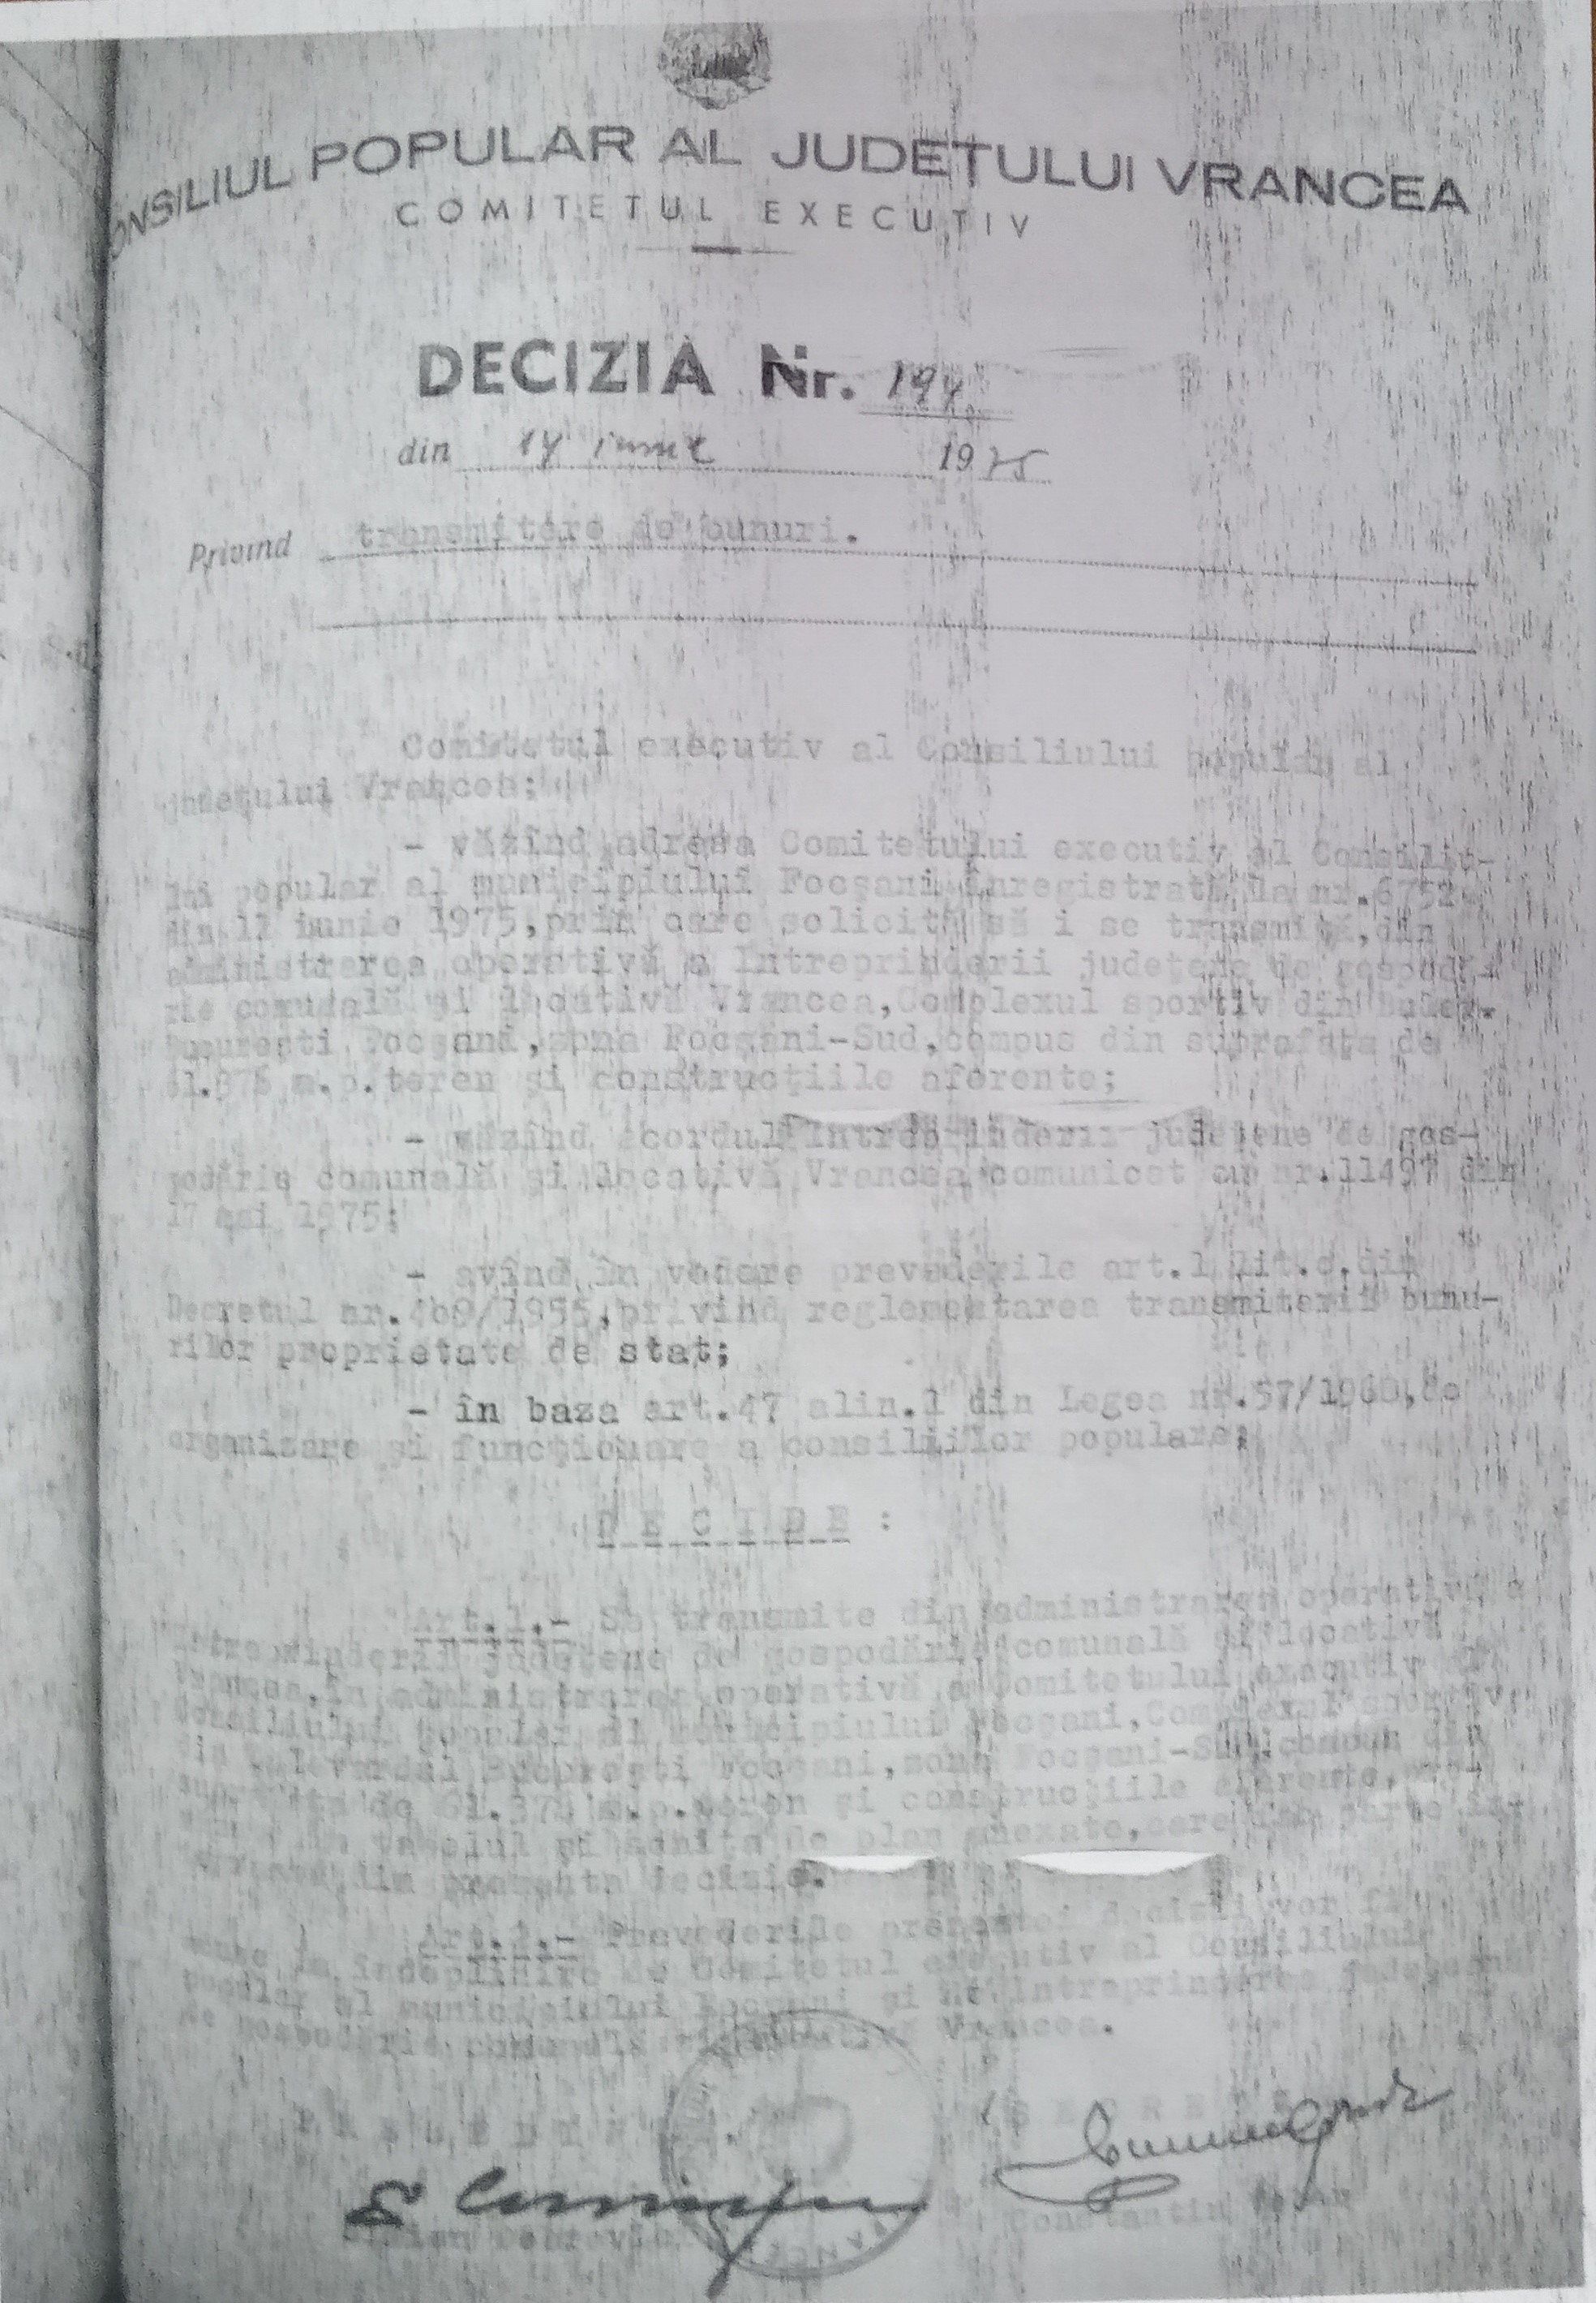 ONSILIUL POPULAR AL JUDEȚULUI VRANCEA
COMITETUL EXECUTIV
DECIZIA Nr. 194
din 14 iunie 1975
Privind transmitere de bunuri.
Comitetul executiv al Consiliului popular al
județului Vrancea;
- văzînd adresa Comitetului executiv al Consiliu-
lui popular al municipiului Focșani înregistrată la nr.6752
din 12 iunie 1975,prin care solicită să i se transmită,din
administrarea operativă a Intreprinderii județene de gospodă-
rie comunală și locativă Vrancea,Complexul sportiv din
București Focșani,zona Focșani-Sud,compus din suprafața de
m.p.teren și construcțiile aferente;
- văzînd acordul Intreprinderii județene de gos-
podărie comunală și locativă Vrancea comunicat cu nr.11497 din
17 mai 1975;
- avînd în vedere prevederile art.1 lit.c.din
Decretul nr.409/1955,privind reglementarea transmiterii bunu-
rilor proprietate de stat;
- în baza art.47 alin.1 din Legea nr.57/1968,de
organizare și funcționare a consiliilor populare;
D E C I D E :
Art.1.- Se transmite din administrarea operativă a
Intreprinderii județene de gospodărie comunală și locativă
Vrancea,în administrarea operativă a Comitetului executiv al
Consiliului popular al municipiului Focșani,Complexul sportiv
din Bulevardul București Focșani,zona Focșani-Sud,compus din
suprafața de m.p.teren și construcțiile aferente,
tabelul și schița de plan anexate,care fac parte in-
tegrantă din prezenta decizie.
Art.2.- Prevederile prezentei decizii vor fi
duse la îndeplinire de Comitetul executiv al Consiliului
popular al municipiului Focșani și de Intreprinderea județeană
de gospodărie comunală și locativă Vrancea.
Constantin